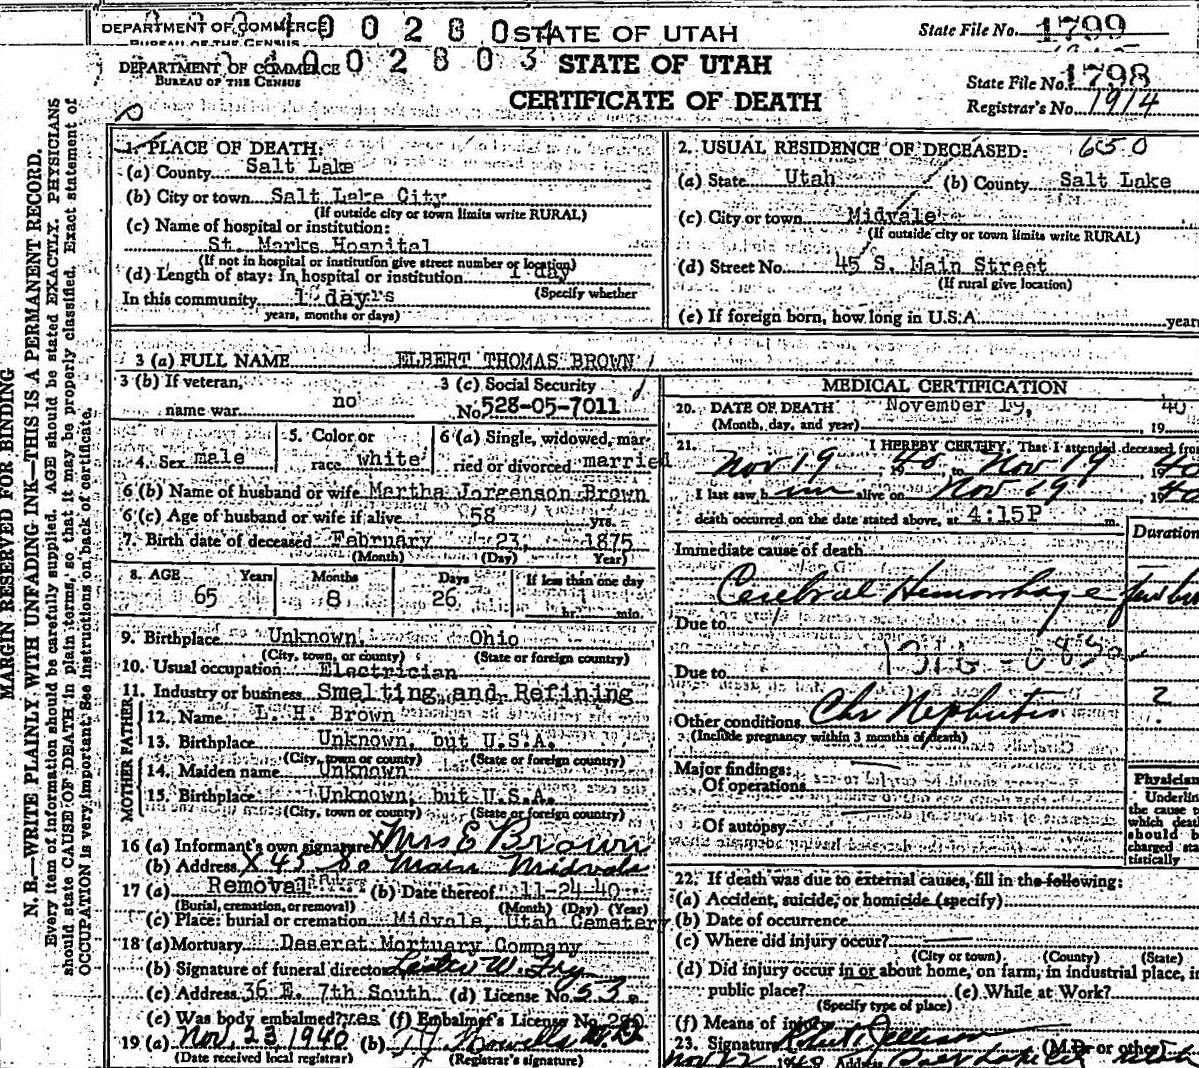 DEPARTMENT OF COMMERCE 0 0 2 8 0 4 STATE OF UTAH State File No. 1799
BUREAU OF THE CENSUS
DEPARTMENT OF COMMERCE 0 0 2 8 0 3 STATE OF UTAH State File No. 1798
BUREAU OF THE CENSUS
CERTIFICATE OF DEATH Registrar's No. 1914
MARGIN RESERVED FOR BINDING
N. B.—WRITE PLAINLY WITH UNFADING INK—THIS IS A PERMANENT RECORD.
Every item of information should be carefully supplied. AGE should be stated EXACTLY. PHYSICIANS
should state CAUSE OF DEATH in plain terms, so that it may be properly classified. Exact statement of
OCCUPATION is very important. See instructions on back of certificate.
1. PLACE OF DEATH:
(a) County Salt Lake
(b) City or town Salt Lake City
(If outside city or town limits write RURAL)
(c) Name of hospital or institution:
St. Marks Hospital
(If not in hospital or institution give street number or location)
(d) Length of stay: In hospital or institution 1 day
(Specify whether
In this community
years, months or days)
2. USUAL RESIDENCE OF DECEASED: 650
(a) State Utah (b) County Salt Lake
(c) City or town Midvale
(If outside city or town limits write RURAL)
(d) Street No. 45 S. Main Street
(If rural give location)
(e) If foreign born, how long in U.S.A. years
3 (a) FULL NAME ELBERT THOMAS BROWN
3 (b) If veteran, name war no
3 (c) Social Security No. 528-05-7011
4. Sex male
5. Color or race white
6 (a) Single, widowed, married or divorced married
6 (b) Name of husband or wife Martha Jorgenson Brown
6 (c) Age of husband or wife if alive 58 yrs.
7. Birth date of deceased February 23, 1875
(Month) (Day) Year)
8. AGE Years Months Days If less than one day
65 8 26 hr. min.
9. Birthplace Unknown, Ohio
(City, town, or county) (State or foreign country)
10. Usual occupation Electrician
11. Industry or business Smelting and Refining
MOTHER FATHER
12. Name L. H. Brown
13. Birthplace Unknown, but U.S.A.
(City, town or county) (State or foreign country)
14. Maiden name Unknown
15. Birthplace Unknown, but U.S.A.
(City, town, or county) (State or foreign country)
16 (a) Informant's own signature X Mrs E Brown
(b) Address X 45 So Main Midvale
17 (a) Removal (b) Date thereof 11-24-40
(Burial, cremation, or removal) (Month) (Day) (Year)
(c) Place: burial or cremation Midvale, Utah Cemetery
18 (a) Mortuary Deseret Mortuary Company
(b) Signature of funeral director
(c) Address 36 E. 7th South (d) License No. 53
(e) Was body embalmed? yes (f) Embalmer's License No.
19 (a) Nov. 23 1940 (b) M.D.
(Date received local registrar) (Registrar's signature)
MEDICAL CERTIFICATION
20. DATE OF DEATH November 19, 19 40
(Month, day, and year)
21. I HEREBY CERTIFY, That I attended deceased from
Nov 19 19 40, to Nov 19, 19 40
I last saw h im alive on Nov 19 19 40
death occurred on the date stated above, at 4:15P m.
Duration
Immediate cause of death
Cerebral Hemorrhage
Due to
Due to
2
Other conditions Chr Nephritis
(Include pregnancy within 3 months of death)
Major findings:
Of operations
Of autopsy
Physician
Underlin
the cause
which deat
should b
charged sta
tistically
22. If death was due to external causes, fill in the following:
(a) Accident, suicide, or homicide (specify)
(b) Date of occurrence
(c) Where did injury occur?
(City or town) (County) (State)
(d) Did injury occur in or about home, on farm, in industrial place, in
public place? (e) While at Work?
(Specify type of place)
(f) Means of injury
23. Signature (M.D. or other)
Address